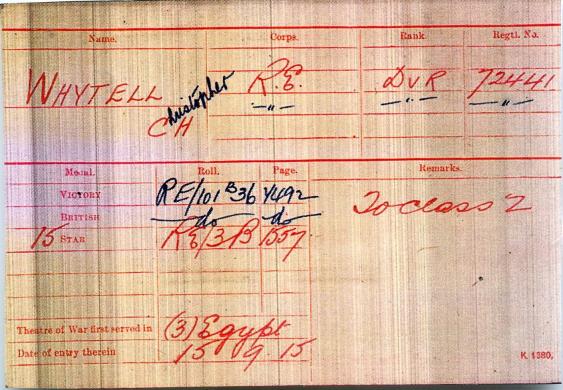 Name. Corps. Rank. Regtl. No.
WHYTELL R.E. DVR 72441
Christopher -"- -"- -"-
Medal. Roll. Page. Remarks.
VICTORY RE/101 B36 Y492 To class Z
BRITISH do do
15 STAR RE/3B 1557
Theatre of War first served in (3) Egypt
Date of entry therein 15 9 15
K. 1380.